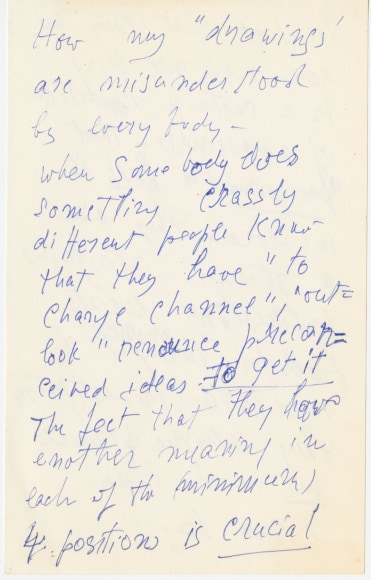 How my "drawings'
are misunderstood
by every body –
when Some body does
something crassly
different people know
that they have "to
change channel", "out=
look" renounce precon=
ceived ideas. to get it
The fact that they have
another meaning in
each of the (minimum)
4. positions is crucial